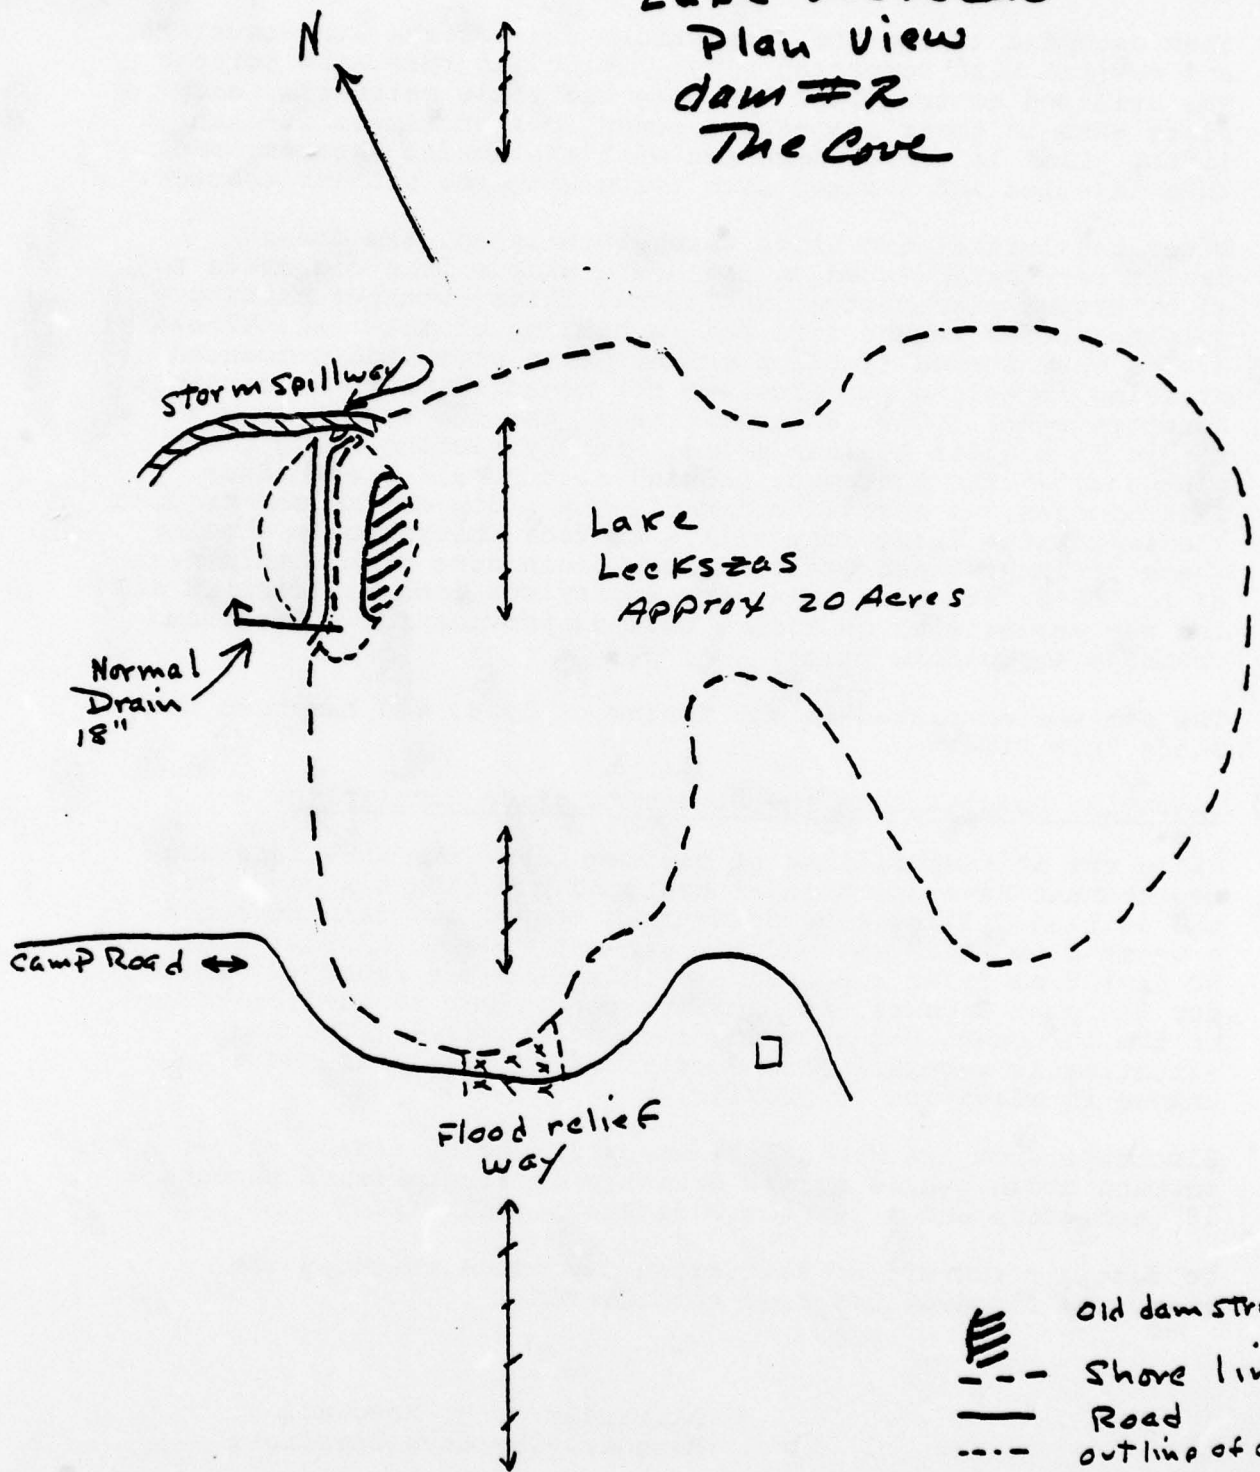 N
Plan View
dam #2
The Cove
Storm Spillway
Lake
Leekszas
Approx 20 Acres
Normal
Drain
18"
Camp Road
Flood relief
way
old dam
Shore
Road
outline of